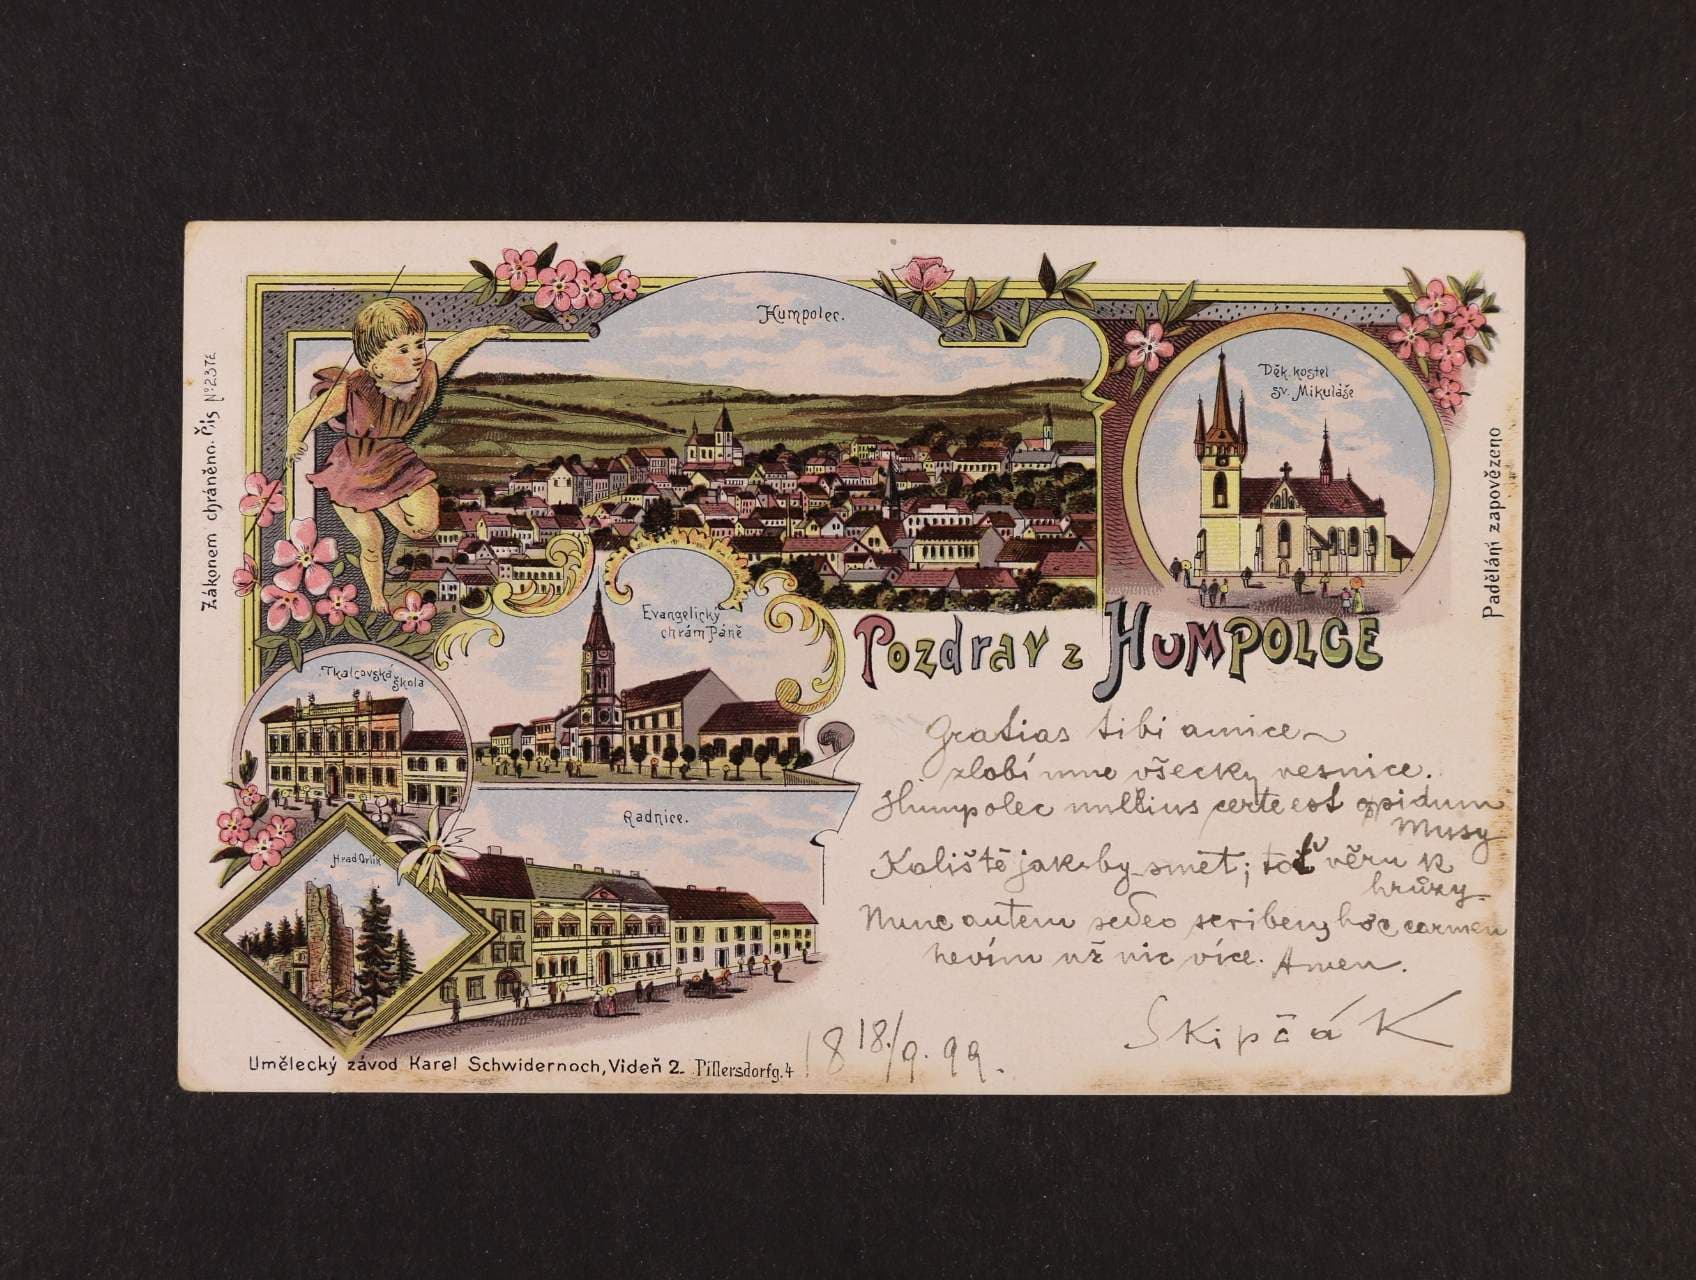 Humpolec.
Děk. kostel
sv. Mikuláše
Zákonem chráněno. Čís. No 237
Padělání zapovězeno
Evangelický
chrám Páně
Tkalcovská
škola
Pozdrav z Humpolce
Radnice.
Hrad Orlík
Gratias tibi amice
zlobí mne všecky vesnice.
Humpolec nullius certe est opidum
Musy
Kaliště jak by smet; toť věru k
hrůzy
Nunc autem sedeo scribens hoc carmen
nevím už nic více. Amen.
Skipčák
18 18./9. 99.
Umělecký závod Karel Schwidernoch, Videň 2. Pillersdorfg. 4